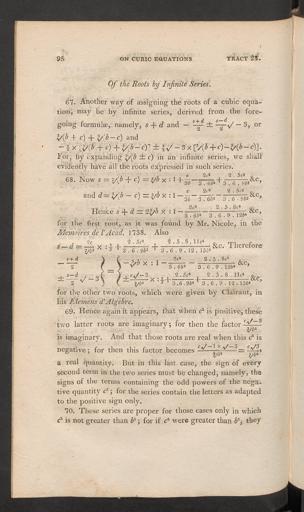 98 ON CUBIC EQUATIONS TRACT 23.
Of the Roots by Infinite Series.
67. Another way of assigning the roots of a cubic equa-
tion, may be by infinite series, derived from the fore-
going formulæ, namely, s + d and − (s+d)/2 ± (s−d)/2 √−3, or
∛(b + c) + ∛(b − c) and
For, by expanding ∛(b ± c) in an infinite series, we shall
evidently have all the roots expressed in such series.
68. Now s = ∛(b + c) = ∛b × : 1 +
and d = ∛(b − c) = ∛b × : 1 −
Hence s + d = 2∛b × : 1 −
for the first root, as it was found by Mr. Nicole, in the
Memoires de l'Acad. 1738. Also
s − d = &c. Therefore
for the other two roots, which were given by Clairaut, in
his Elemens d'Algebre.
69. Hence again it appears, that when c² is positive, these
two latter roots are imaginary; for then the factor
is imaginary. And that those roots are real when this c² is
negative; for then this factor becomes
a real quantity. But in this last case, the sign of every
second term in the two series must be changed, namely, the
signs of the terms containing the odd powers of the nega-
tive quantity c²; for the series contain the letters as adapted
to the positive sign only.
70. These series are proper for those cases only in which
c² is not greater than b²; for if c² were greater than b², they